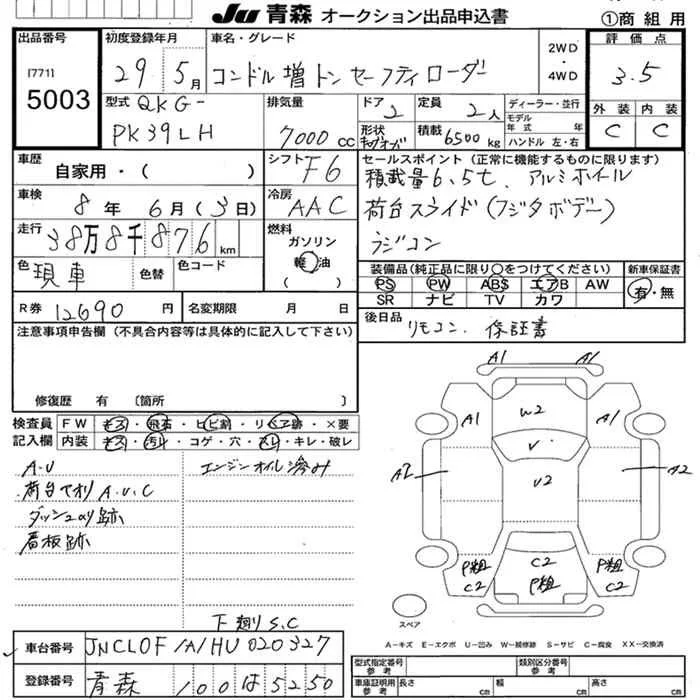 JU 青森 オークション出品申込書
①商組用
出品番号
[771]
5003
初度登録年月
29年5月
車名・グレード
コンドル増トンセーフティローダー
2WD
・
4WD
評価点
3.5
外装 内装
C C
型式 QKG-
PK39LH
排気量
7000cc
ドア 2
形状
定員
2人
積載 6500kg
ディーラー・並行
モデル
年式 年
ハンドル 左・右
車歴
自家用・( )
シフト F6
車検
8年 6月(3日)
冷房
AAC
走行
38万8千876km
燃料
ガソリン
軽油
( )
色 現車 色替 色コード
セールスポイント(正常に機能するものに限ります)
積載量6.5t、アルミホイール
荷台スライド(フジタボデー)
ラジコン
装備品(純正品に限り○をつけてください)
PS PW ABS エアB AW
SR ナビ TV カワ
新車保証書
有・無
R券 12690円
名変期限 月 日
後日品 リモコン、保証書
注意事項申告欄(不具合内容等は具体的に記入して下さい)
修復歴 有 〔箇所 〕
検査員
記入欄
FW キズ・飛石・ヒビ割・リペア跡・×要
内装 キズ・汚れ・コゲ・穴・スレ・キレ・破レ
A・U
エンジンオイル滲み
荷台サオリ A.U.C
ダッシュ凹り跡
看板跡
下廻りS.C
A1 A1
A1 W2 A1
V
A2 U2 A2
P粗 C2 P粗
C2 P粗 C2
スペア
A-キズ E-エクボ U-凹み W-補修跡 S-サビ C-腐食 XX-交換済
車台番号 JNCLOF1A1HU020327
登録番号 青森 100は5250
型式指定番号
参考
類別区分番号
参考
車庫証明用
参考
長さ CM 幅 CM 高さ CM